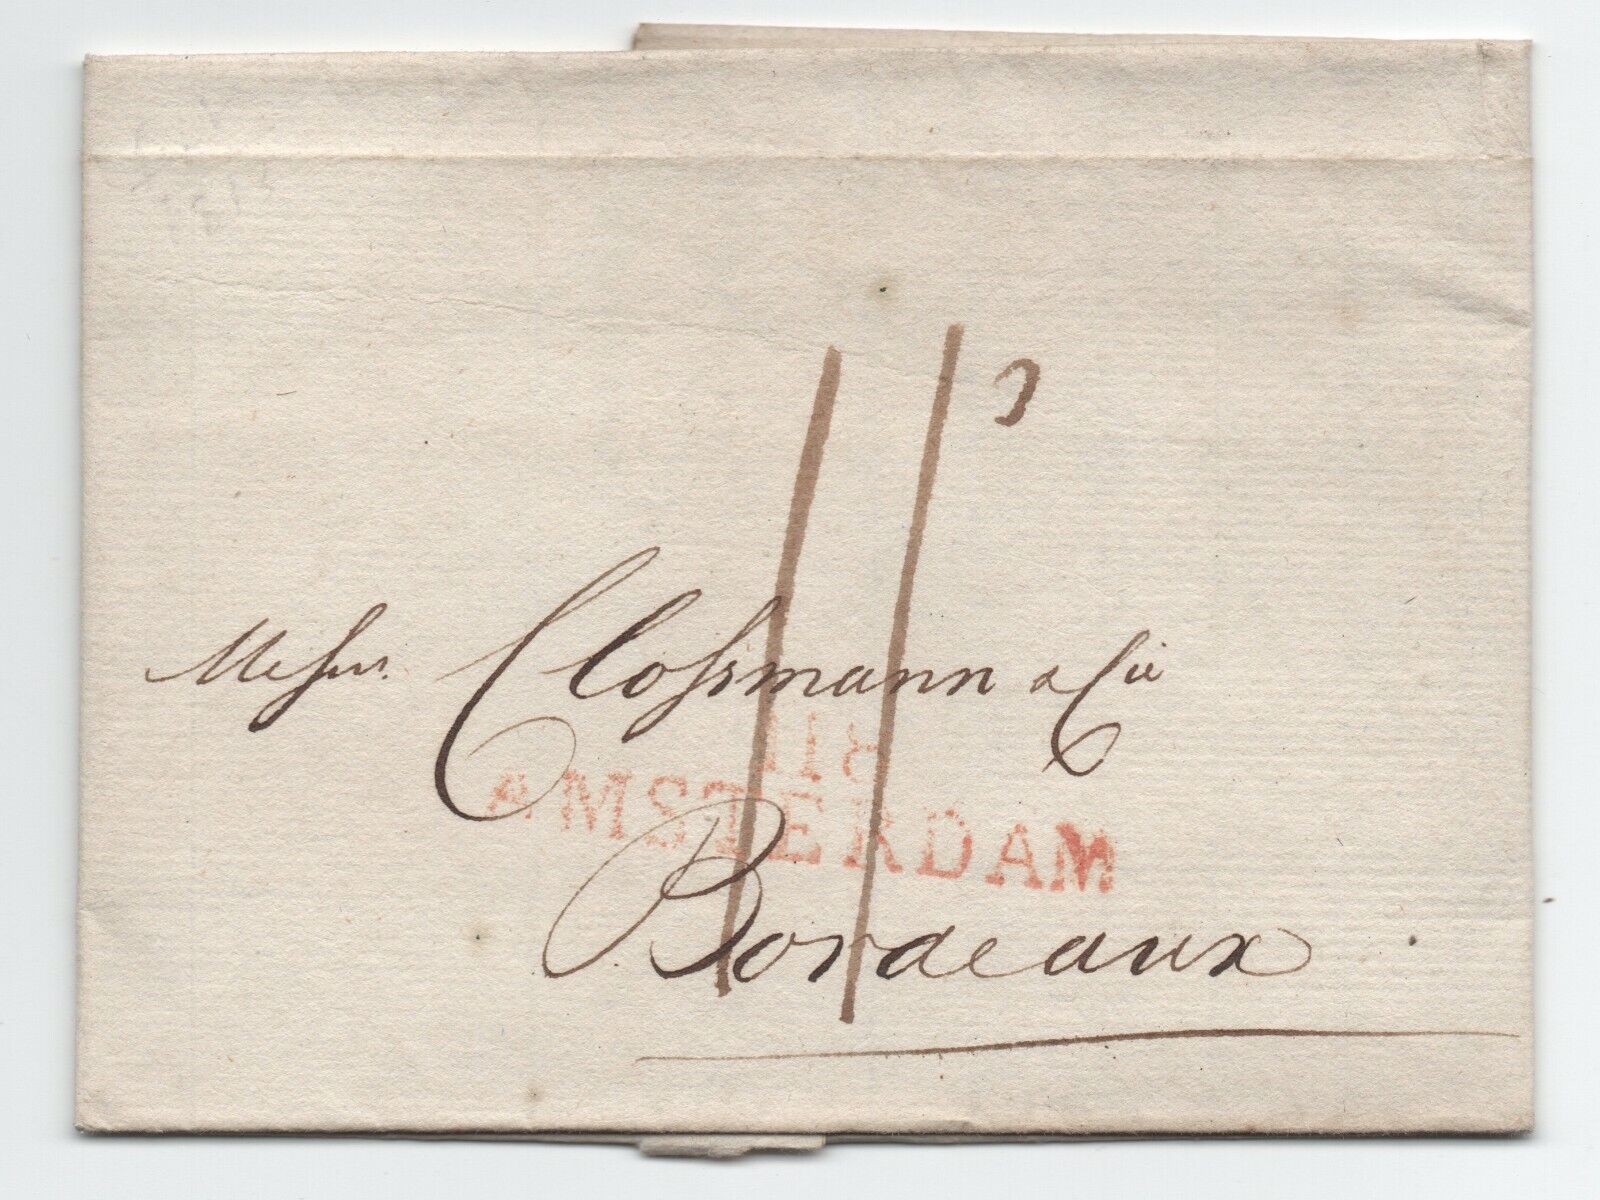 11
Messrs. Clossmann & Cie
118
AMSTERDAM
Bordeaux